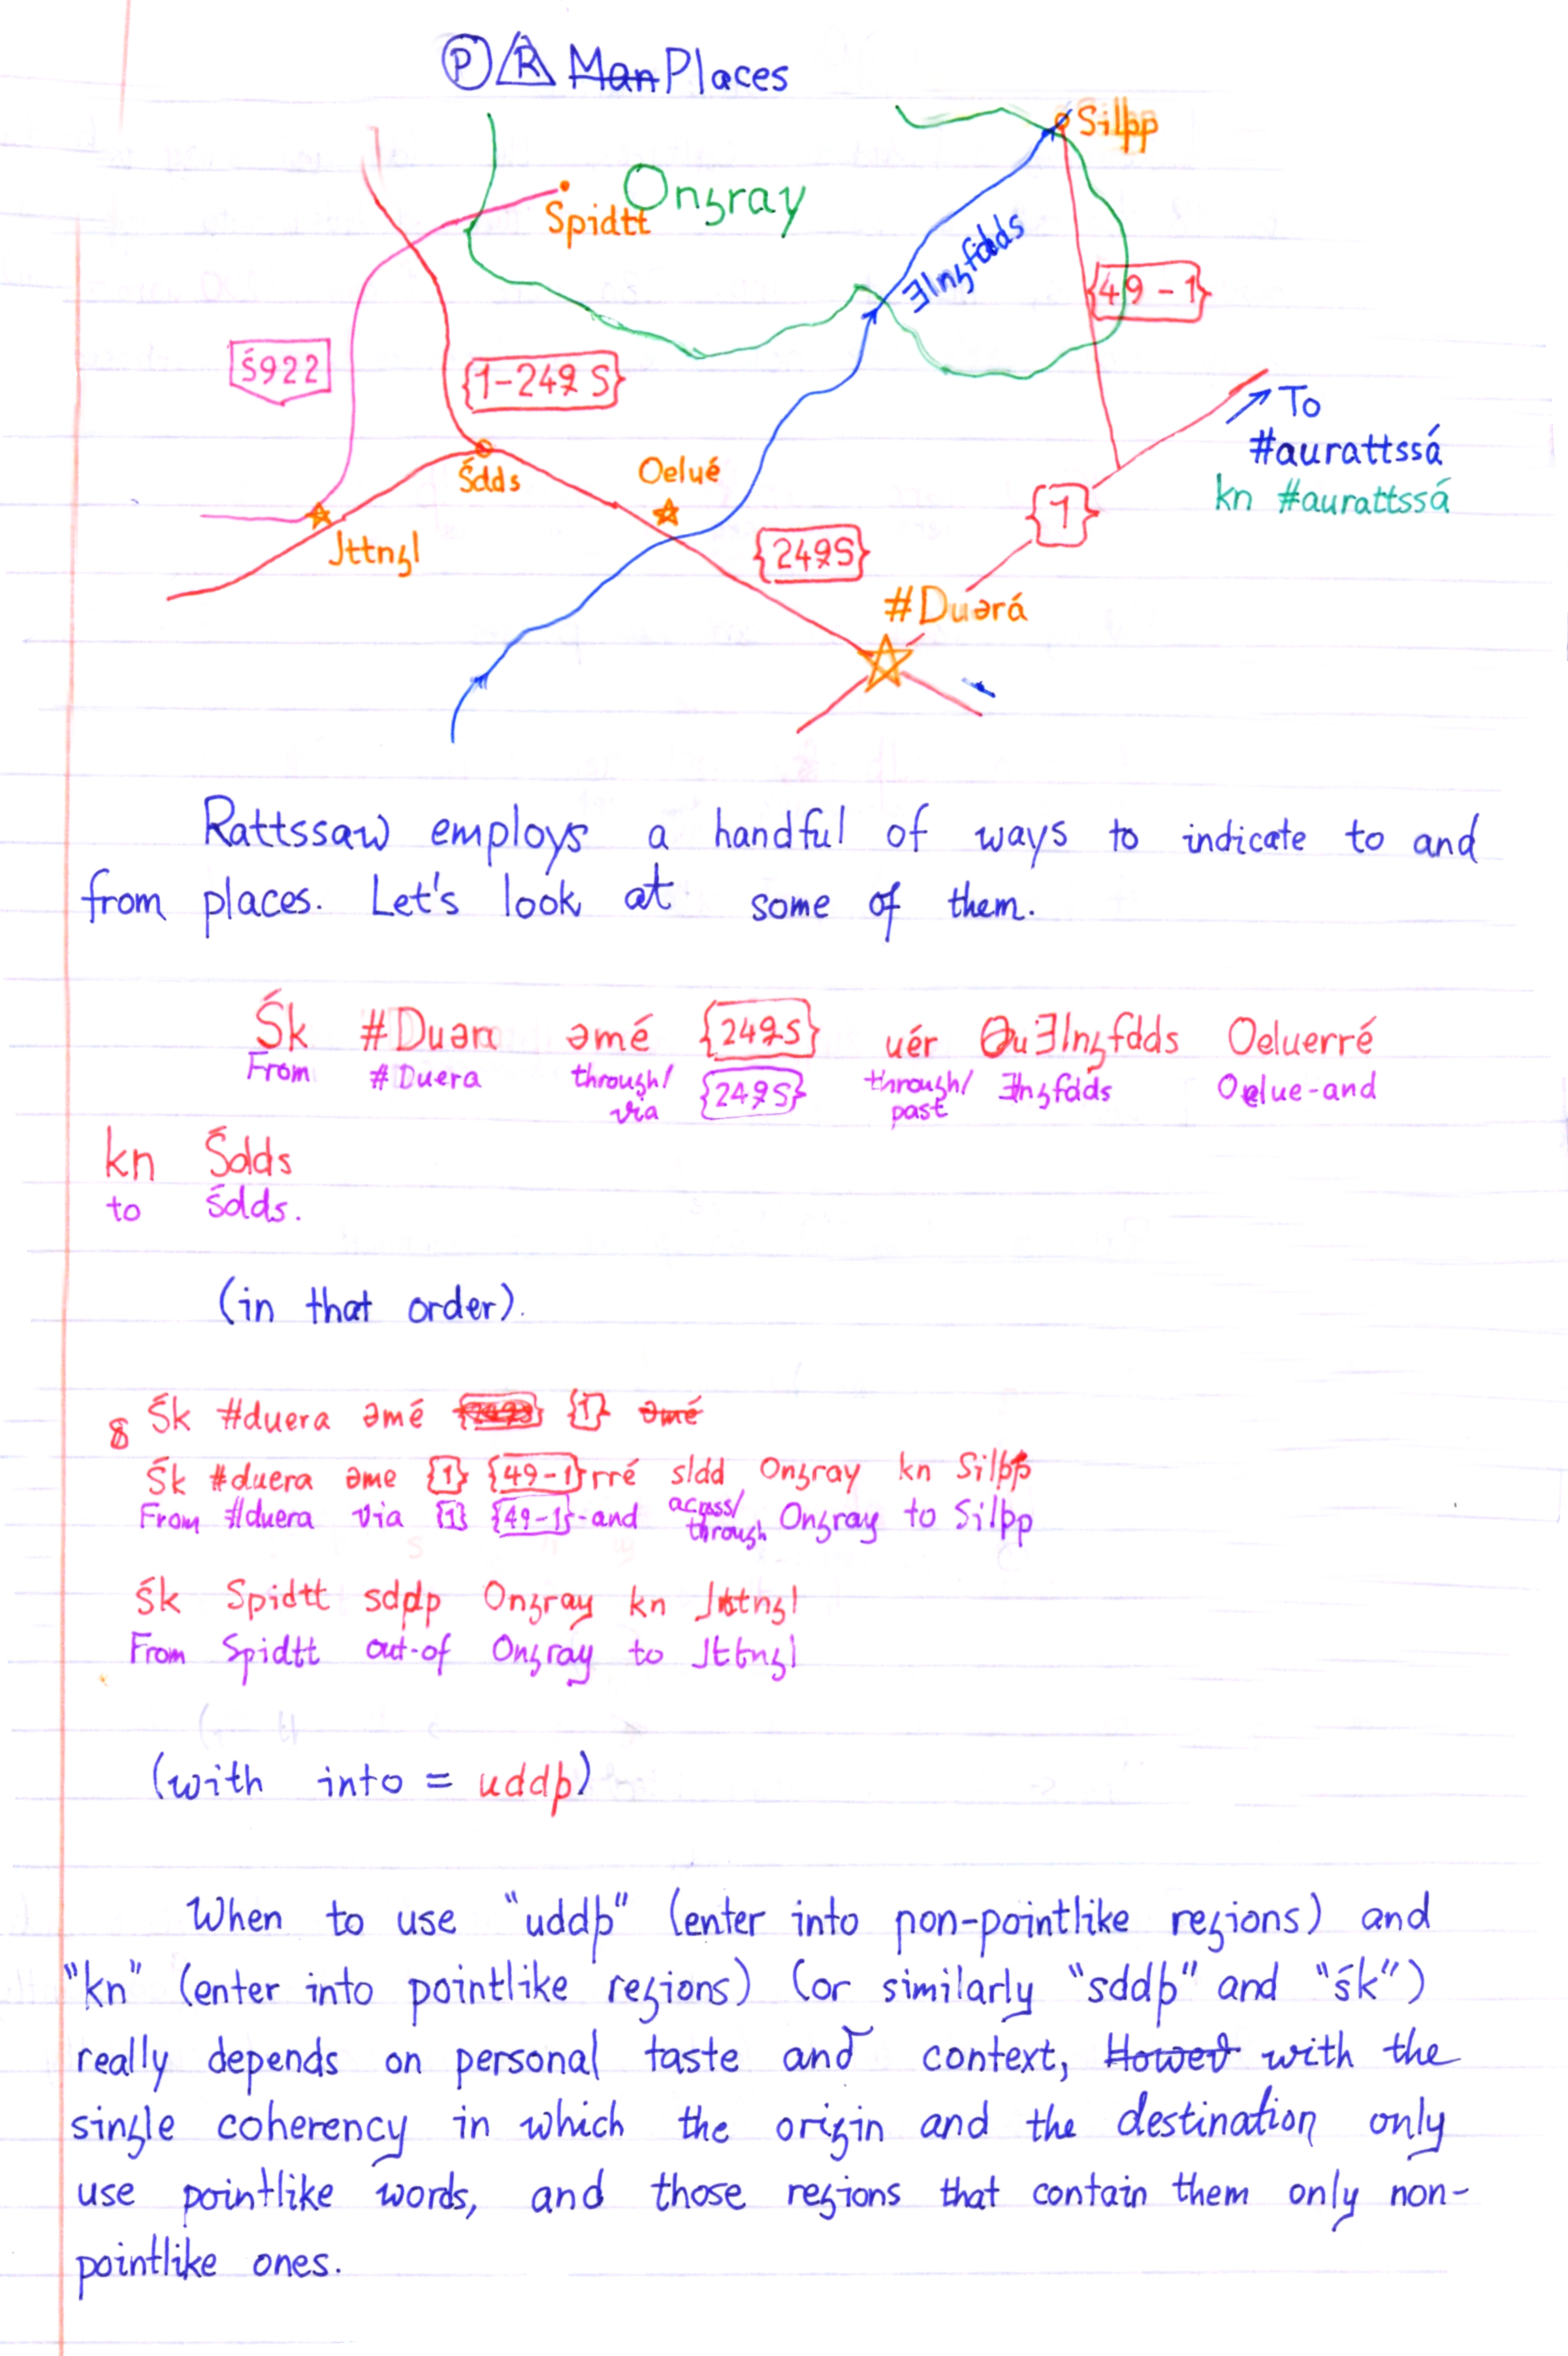 Ⓟ R ~~Man~~ Places
Silþp
Onȝray
Spidtt
ƎlnȝfddS
{49-1}
Ś922
{1-249 S}
To
#aurattssá
kn #aurattssá
Śdds
Oelué
{1}
Jttnȝl
{249S}
#Duərá
Rattssaw employs a handful of ways to indicate to and
from places. Let's look at some of them.
Śk #Duərа əmé {249S} uér ƎlnȝfddS Oeluerré
From #Duera through/via {249S} through/past Ǝlnȝfdds Oelue-and
kn Śdds
to Śdds.
(in that order).
Śk #duera əmé {1} ~~əmé~~
Śk #duera əme {1} {49-1}rré sldd Onȝray kn Silþp
From #duera via {1} {49-1}-and across/through Onȝray to Silþp
Śk Spidtt sddþ Onȝray kn Jttnȝl
From Spidtt out-of Onȝray to Jttnȝl
(with into = uddþ)
When to use "uddþ" (enter into non-pointlike reȝions) and
"kn" (enter into pointlike reȝions) (or similarly "sddþ" and "śk")
really depends on personal taste and context, ~~Howev~~ with the
sinȝle coherency in which the oriȝin and the destination only
use pointlike words, and those reȝions that contain them only non-
pointlike ones.